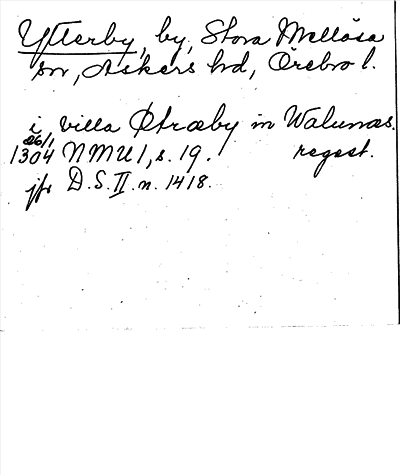 Ytterby, by, Stora Mellösa
sn, Askers hd, Örebro l.
i villa Øtræby in Walunæs.
26/1
1304 NMU 1, s. 19. regest.
jfr D.S. II. n. 1418.